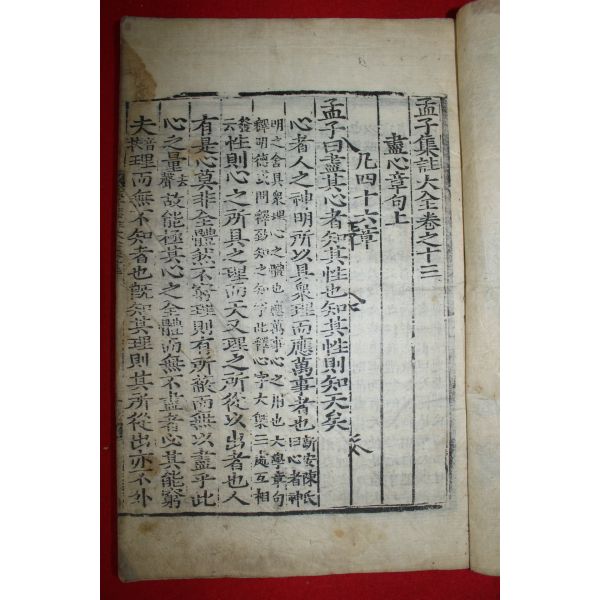 孟子集註大全卷之十三
盡心章句上
凡四十六章
孟子曰盡其心者知其性也知其性則知天矣
心者人之神明所以具衆理而應萬事者也新安陳氏曰心者神
明之舍具衆理心之體也應萬事心之用也大學章句
釋明德或問釋致知之知字與此釋心字大槩三處互相
發云性則心之所具之理而天又理之所從以出者也人
有是心莫非全體然不窮理則有所蔽而無以盡乎此
心之量去聲故能極其心之全體而無不盡者必其能窮
夫音扶理而無不知者也旣知其理則其所從出亦不外